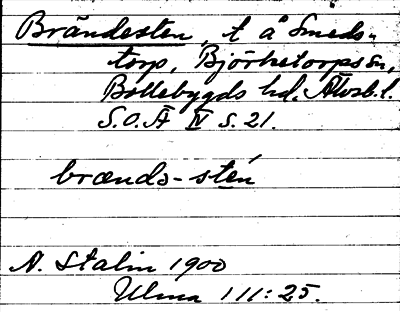 Brändesten, t å Smeds-
torp, Björketorps sn,
Bollebygds hd. Älvsb. l.
S.O.Ä IV S. 21.
brænds-stén
N. Stalin 1900
Ulma 111:25.